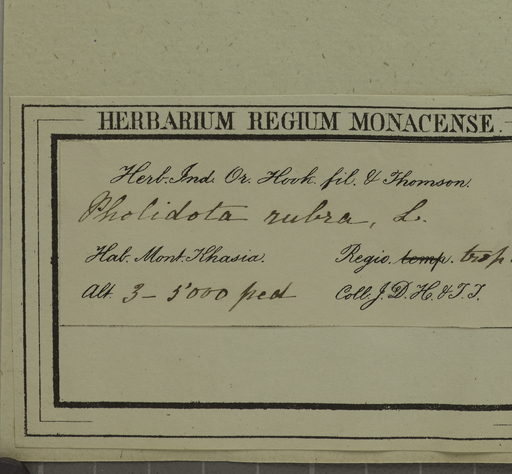 HERBARIUM REGIUM MONACENSE.
Herb. Ind. Or. Hook. fil. & Thomson.
Pholidota rubra, L.
Hab. Mont. Khasia. Regio. temp. trop.
Alt. 3-5'000 ped Coll. J. D. H. & T. T.